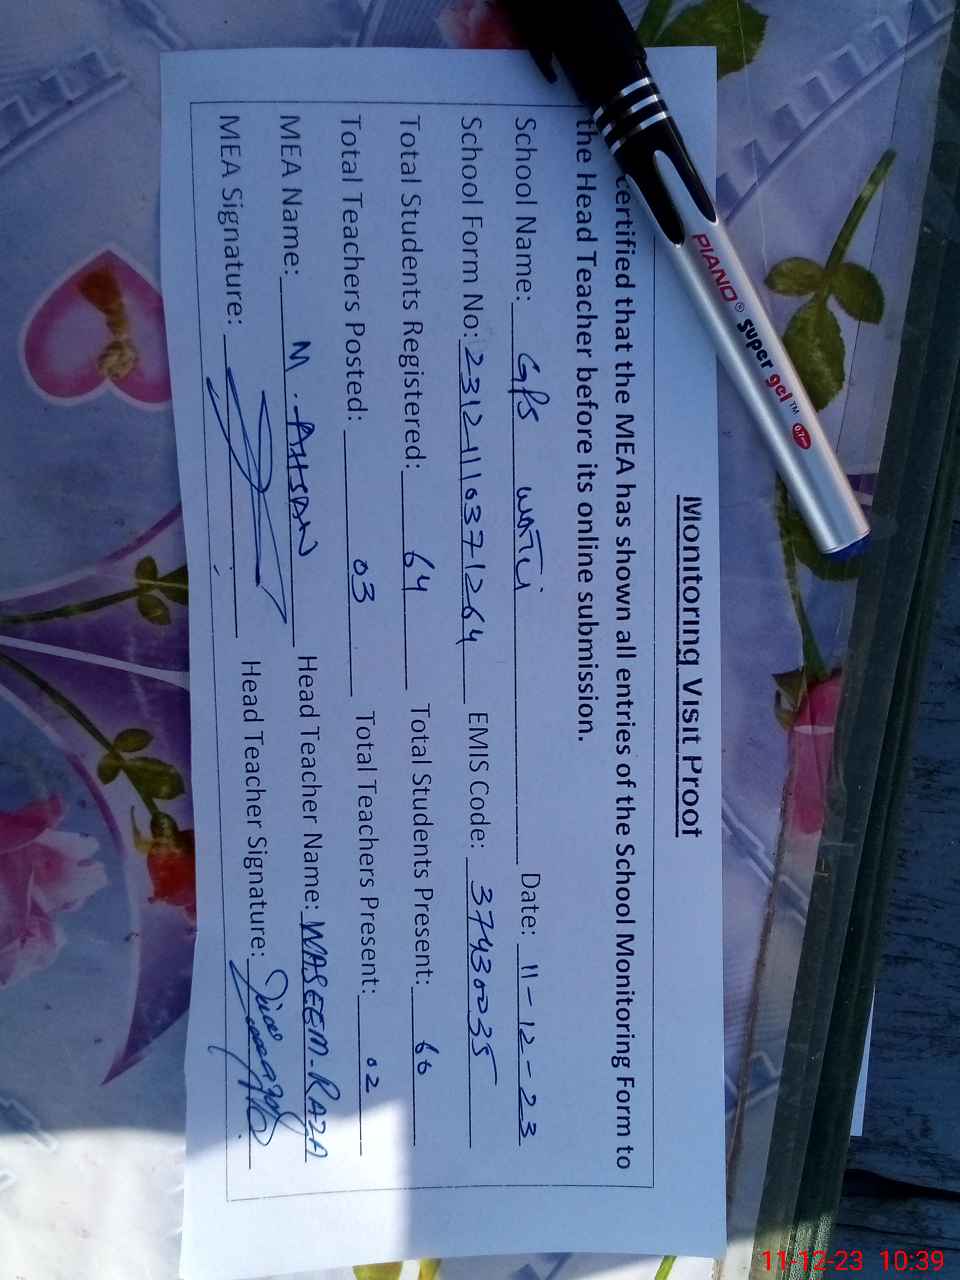 Monitoring Visit Proof
certified that the MEA has shown all entries of the School Monitoring Form to
the Head Teacher before its online submission.
School Name: GPS Date: 11-12-23
School Form No: 2312-11037-1264 EMIS Code: 37430035
Total Students Registered: 64 Total Students Present: 60
Total Teachers Posted: 03 Total Teachers Present: 02
MEA Name: M. AHSAN Head Teacher Name: WASEEM-RAZA
MEA Signature: Head Teacher Signature:
PIANO® Super gel™ 0.7mm
11-12-23 10:39